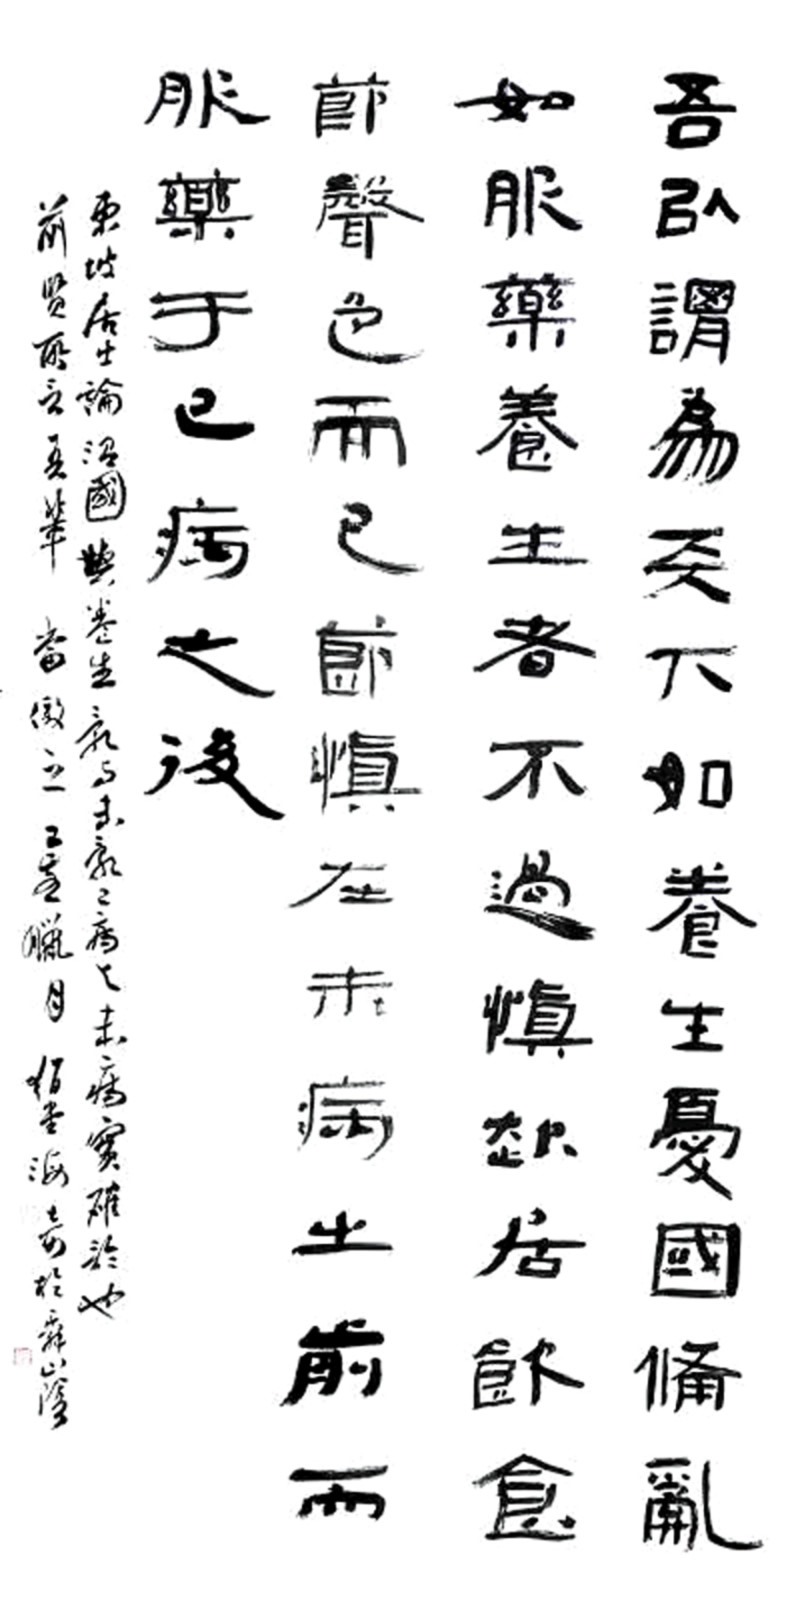 吾以謂為天下如養生憂國備亂
如服藥養生者不過慎起居飲食
節聲色而已節慎在未病之前而
服藥于已病之後
東坡居士論治國與養生亂与未亂已病与未病實確論也
前賢所言吾輩當儆之壬寅臘月海於舜山陰